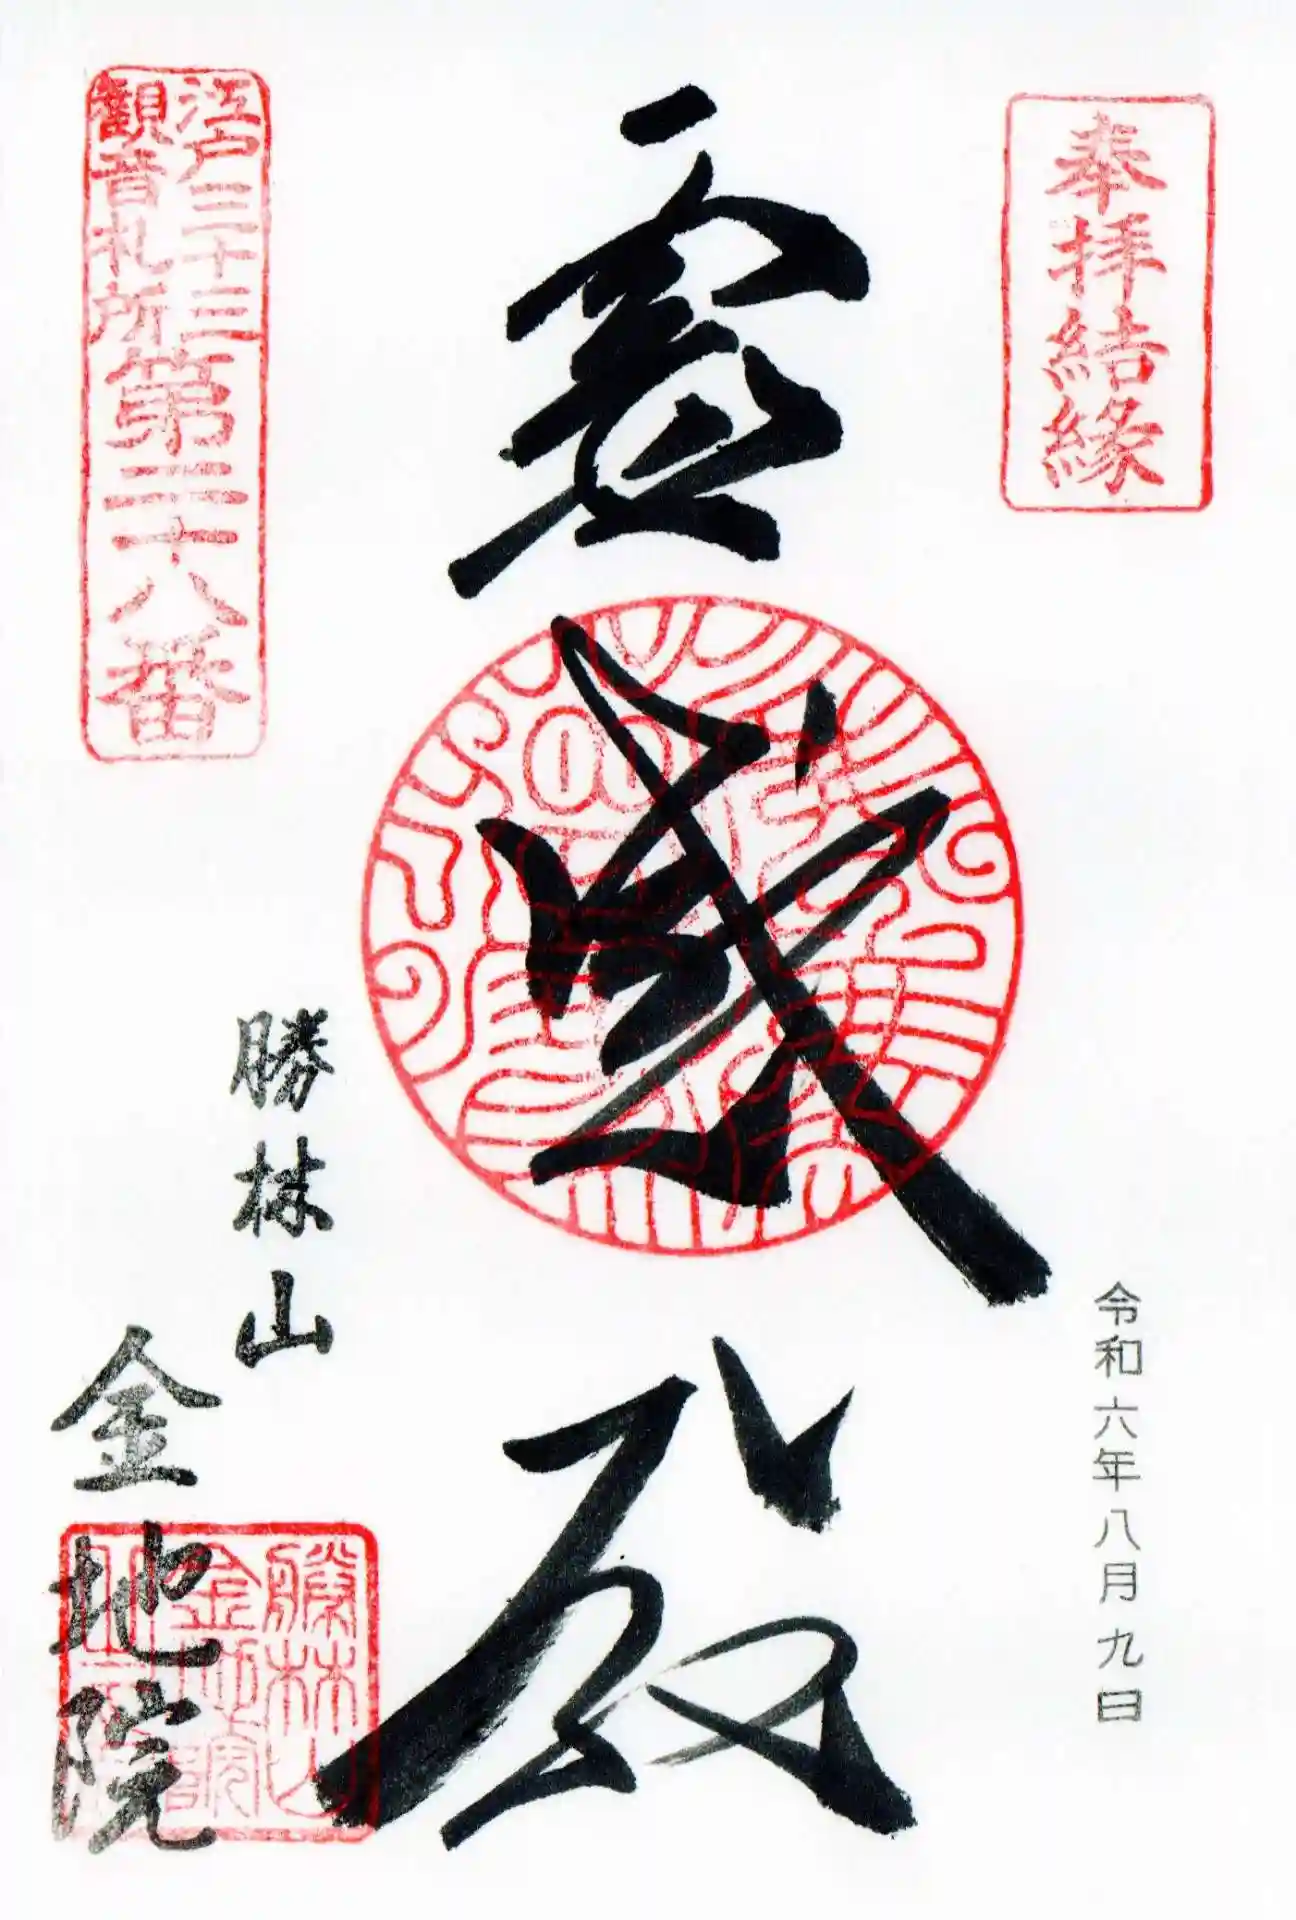 奉拝結縁
令和六年八月九日
霊感殿
江戸三十三
観音札所
第二十八番
勝林山
金地院
勝林山
金地院